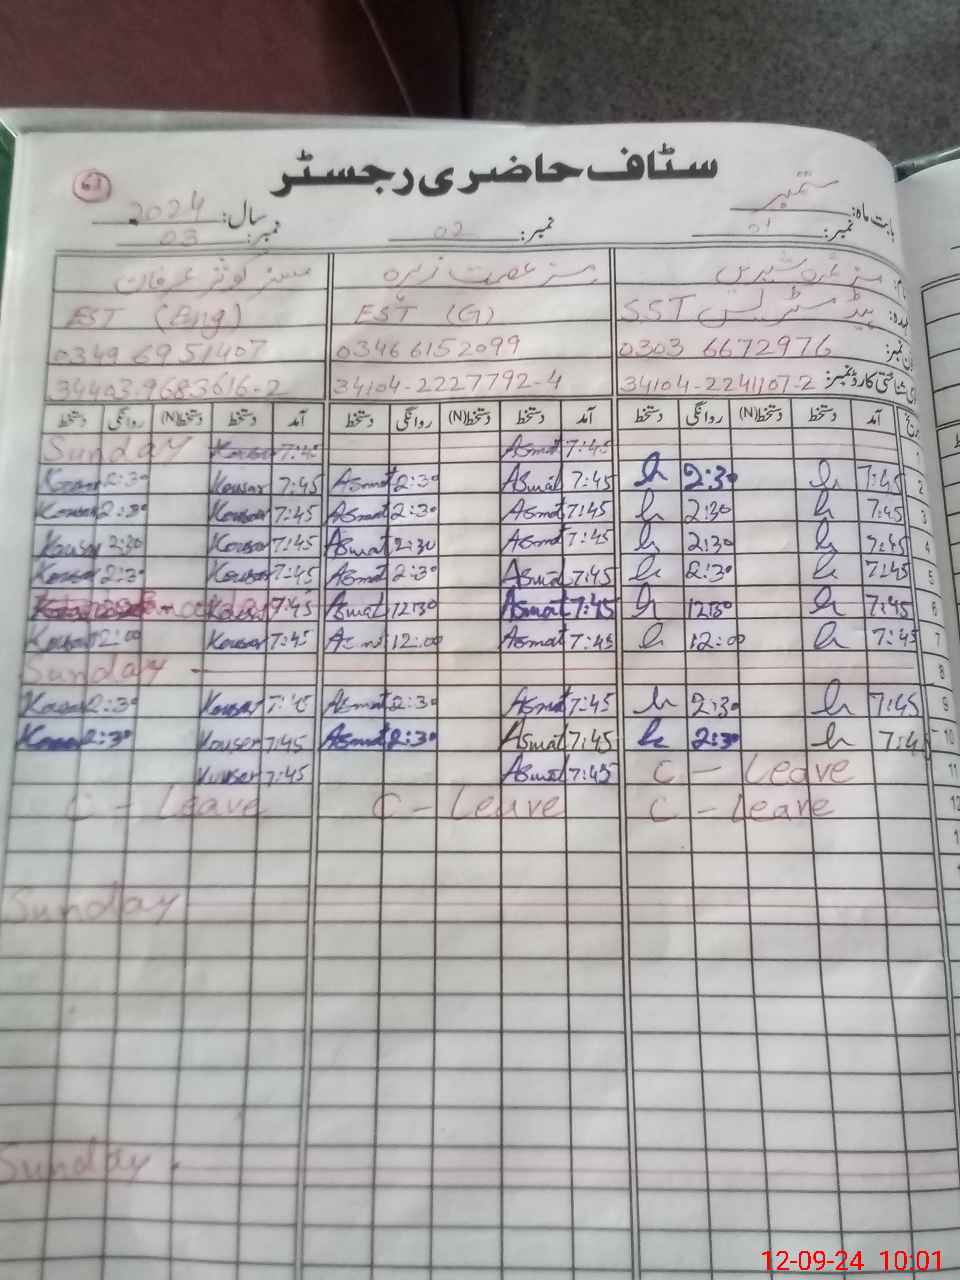 سٹاف حاضری رجسٹر
63
بابت ماہ: ستمبر
سال: 2024
نمبر: 01 نمبر: 02 نمبر: 03
مسز عصمت زہرہ مسز کوثر عرفان
ہیڈ مسٹریس SST EST (G) EST (Eng)
0303 6672976 0346 6152099 0349 6951407
34104-2241107-2 34104-2227792-4 34403-9683616-2
آمد دستخط دستخط(N) روانگی دستخط آمد دستخط دستخط(N) روانگی دستخط آمد دستخط دستخط(N) روانگی دستخط
Sunday Kousar 7:45 Asmat 7:45 1
Kousar 2:30 Kousar 7:45 Asmat 2:30 Asmat 7:45 2:30 7:45 2
Kousar 2:30 Kousar 7:45 Asmat 2:30 Asmat 7:45 2:30 7:45 3
Kousar 2:30 Kousar 7:45 Asmat 2:30 Asmat 7:45 2:30 7:45 4
Kousar 2:30 Kousar 7:45 Asmat 2:30 Asmat 7:45 2:30 7:45 5
7:45 Asmat 12:30 Asmat 7:45 12:30 7:45 6
Kousar 12:00 Kousar 7:45 Asmat 12:00 Asmat 7:45 12:00 7:45 7
Sunday 8
Kousar 2:30 Kousar 7:45 Asmat 2:30 Asmat 7:45 2:30 7:45 9
Kousar 2:30 Kouser 7:45 Asmat 2:30 Asmat 7:45 2:30 7:45 10
Kouser 7:45 Asmat 7:45 C - Leave 11
C - Leave C - Leave C - Leave 12
Sunday
Sunday
12-09-24 10:01